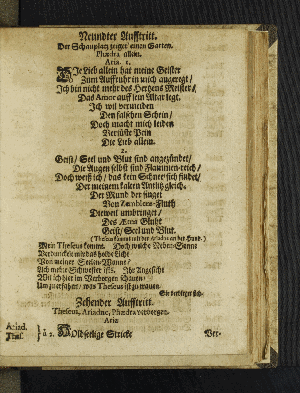 Neundter Aufftritt.
Der Schauplatz zeiget einen Garten.
Phædra allein.
Aria. 1.
Die Lieb allein hat meine Geister
Zum Auffruhr in mich angeregt /
Ich bin nicht mehr des Hertzens Meister /
Das Amor auff sein Altar legt.
Ich wil vermeiden
Den falschen Schein /
Doch macht mich leiden
Versüste Pein
Die Lieb allein.
2.
Geist / Seel und Blut sind angezündet /
Die Augen selbst sind Flammen-reich /
Doch weiß ich / das kein Schnee sich findet /
Der meinem kalten Antlitz gleich.
Der Mund der singet
Von Fluth
Dieweil umbringet /
Des Ætna Gluht
Geist / Seel und Blut.
(Theseus kommt mit der Ariadne an der Hand.)
Mein Theseus kommt. Doch welche Neben-Sonne
Verdunckelt mir das holde Licht
Von meiner Seelen-Wonne /
Ach meine Schwester ists. Ihr Angesicht
Wil ich hier im Verborgen schauen /
Um zuerfahren / was Theseus ist zu trauen.
Sie verbirget sich.
Zehender Aufftritt.
Theseus, Ariadne, Phædra verborgen.
Aria
Ariad.
Thes. à 2. Holdseelige Stricke
Ver-